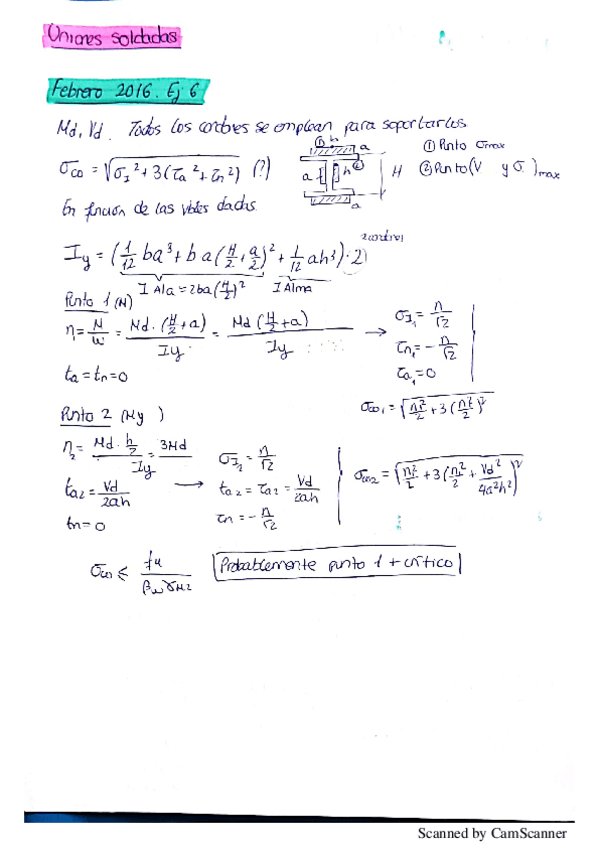 Uniones soldadas
Febrero 2016. Ej 6
Md, Vd. Todos los cordones se emplean para soportarlos.
σco = √(σI² + 3(τa² + τn²)) (?)
b a
a h ② H
a
① Punto σmax
② Punto (V y σ)max
En función de las vbles dadas.
Iy = (1/12 ba³ + ba(H/2 + a/2)² + 1/12 ah³)·2 2 cordones
I Ala = 2ba(H/2)² I Alma
Punto 1 (M)
n = M/W = Md·(H/2+a)/Iy = Md(H/2+a)/Iy →
σI₁ = n/√2
τn₁ = -n/√2
τa₁ = 0
ta = tn = 0
σco₁ = √(n²/2 + 3(n²/2)²
Punto 2 (My )
n₂ = Md·h/2/Iy = 3Md
σI₂ = n/√2
ta₂ = Vd/2ah → ta₂ = τa₂ = Vd/2ah
tn = 0
τn = -n/√2
σco₂ = √(n²/2 + 3(n²/2 + Vd²/4a²h²)²
σco ≤ fu/βwγM2
Probablemente punto 1 + crítico
Scanned by CamScanner